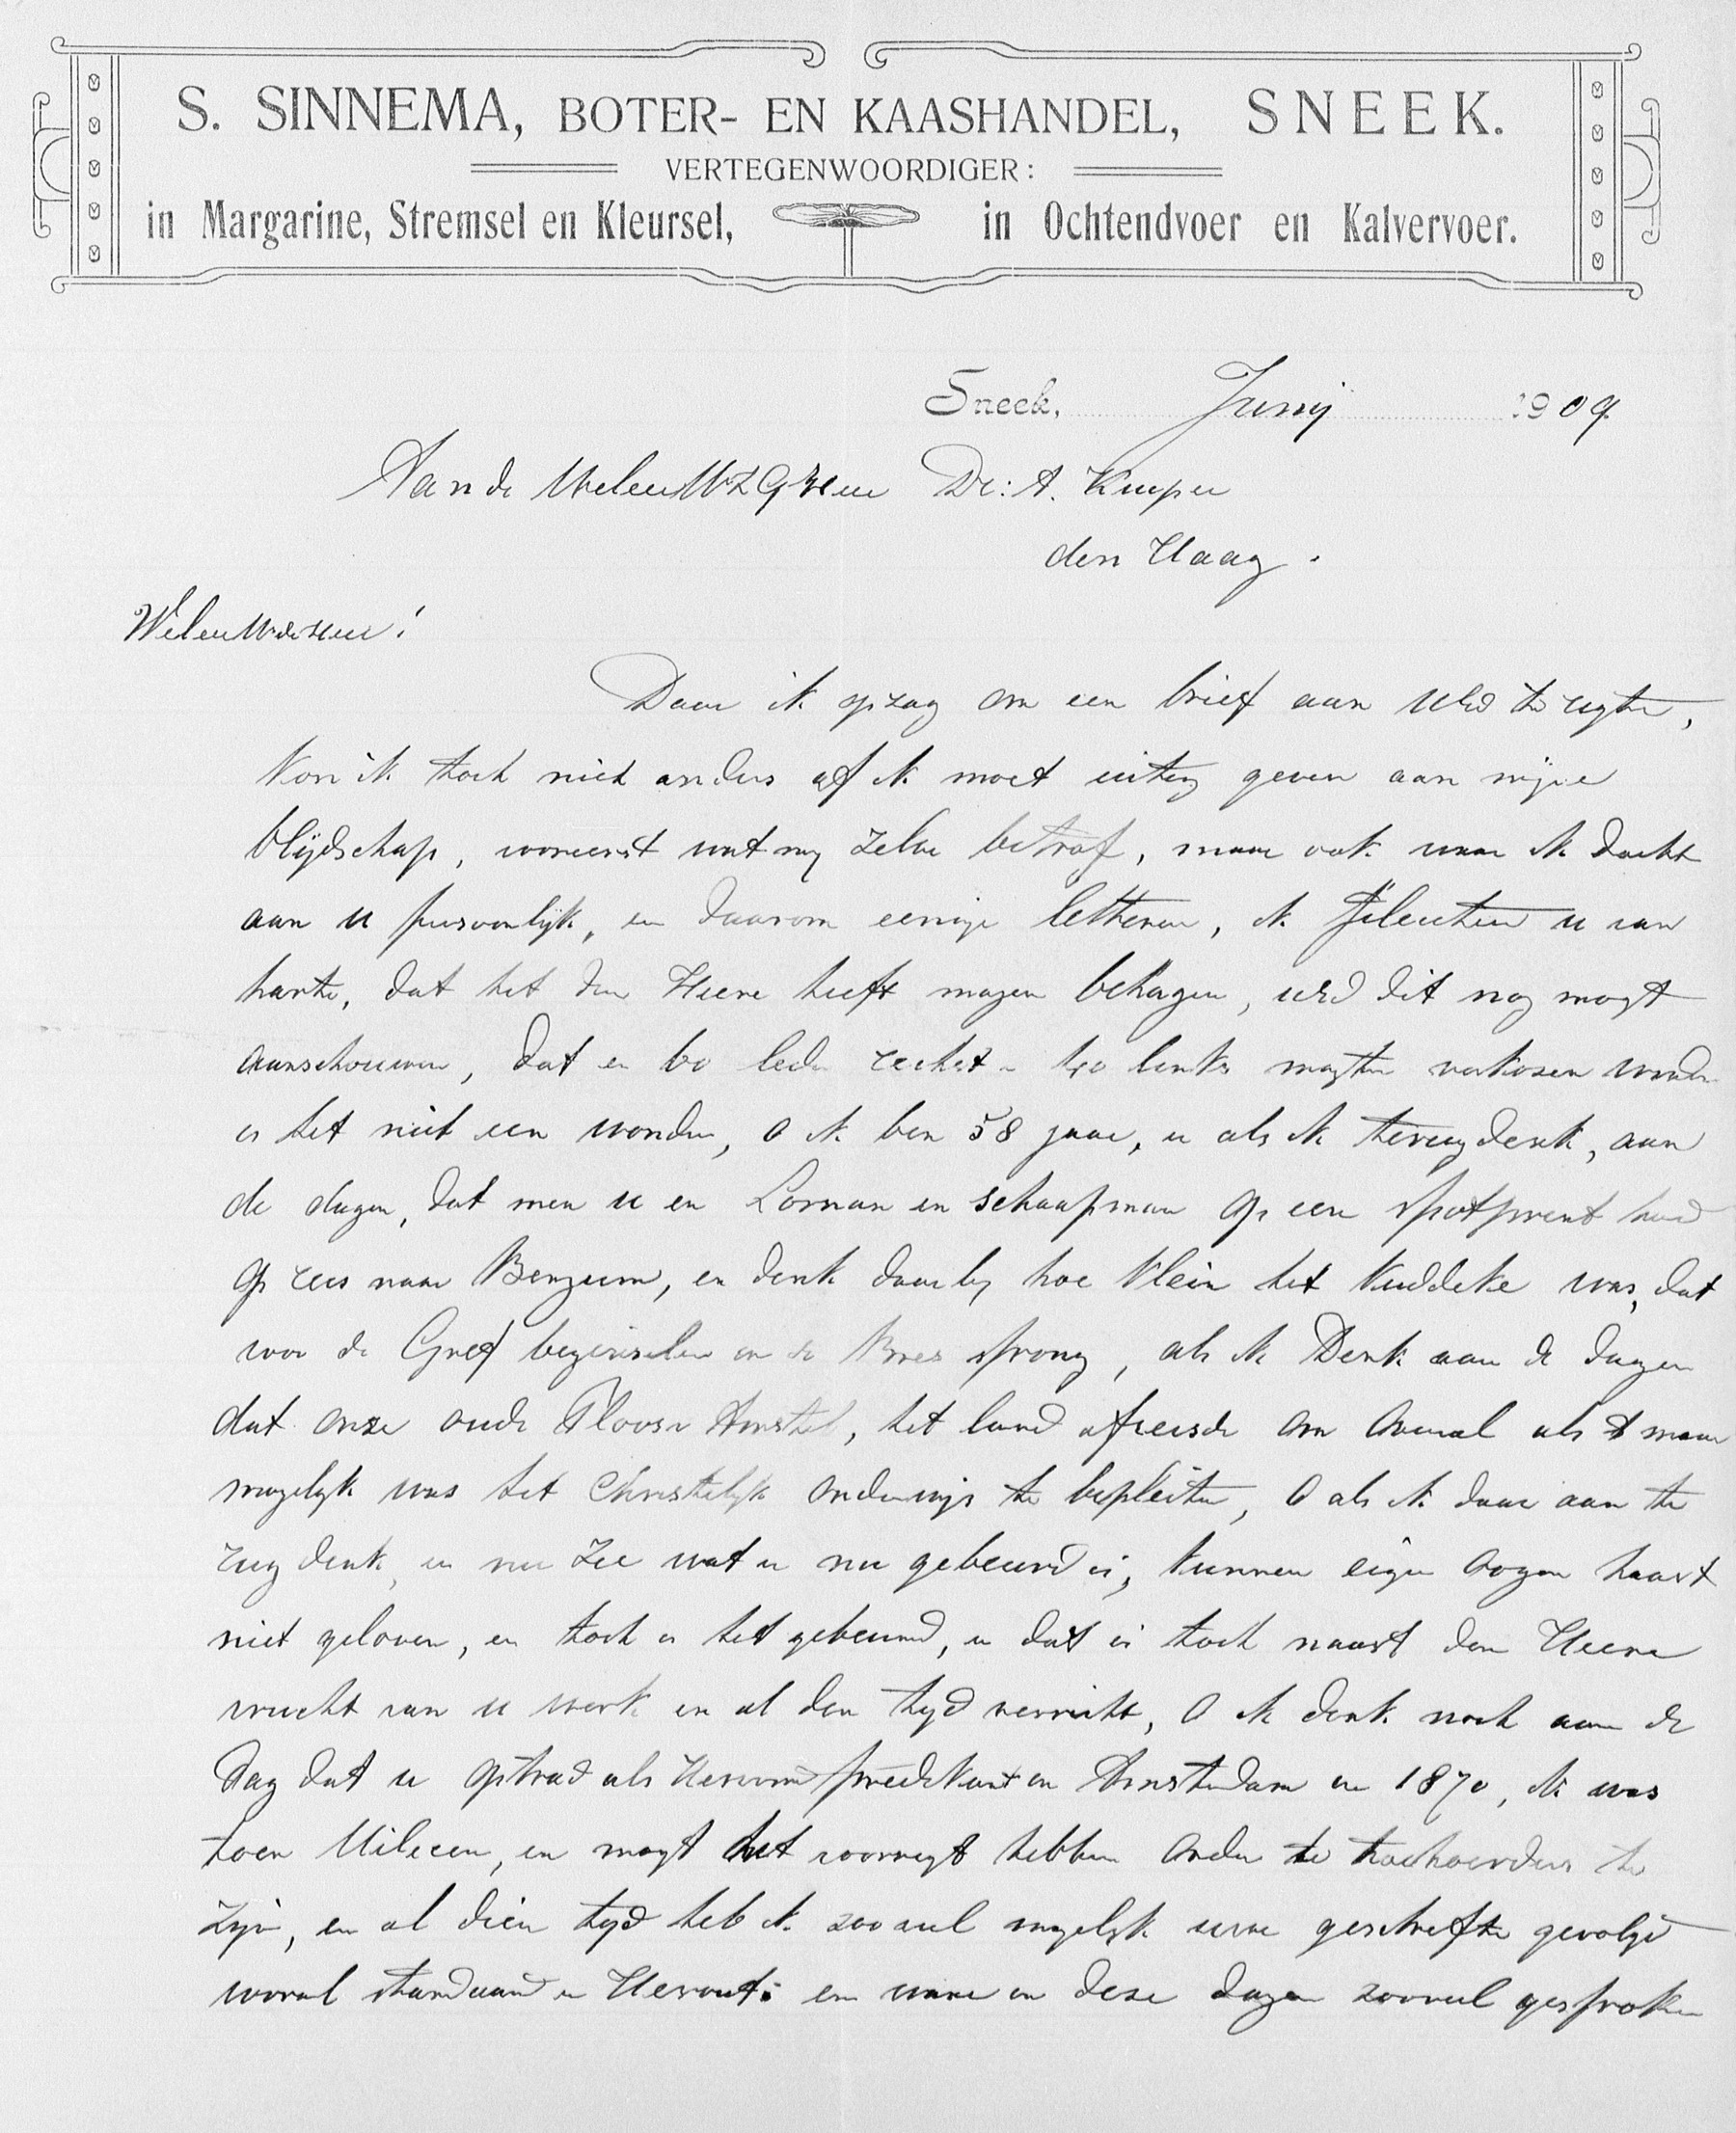 S. SINNEMA, BOTER- EN KAASHANDEL, SNEEK.
VERTEGENWOORDIGER:
in Margarine, Stremsel en Kleursel, in Ochtendvoer en Kalvervoer.
Sneek, Junij 1909
Aan de WeleerWZGHeer Dr: A. Kuyper
den Haag.
WeleerwdeHeer!
Daar ik opzag om een brief aan UEd te rigten,
kon ik toch niet anders of ik moet uiting geven aan mijne
blijdschap, vooreerst wat my zelve betraf, maar ook waar ik dacht
aan u persoonlijk, en daarom eenige letteren, ik u van
harte, dat het den Heere heeft mogen behagen, UEd dit nog mogt
aanschouwen, dat er 60 leden rechts en 40 links mogten verkozen worden
is het niet een wonder, o ik ben 58 jaar, en als ik terug denk, aan
de dagen, dat men u en Loman en Schaapman op een spotprent had
op reis naar Bergum, en denk daarby hoe klein het kuddeke was, dat
voor de Gref beginselen in de Bres sprong, als ik Denk aan de dagen
dat onze oude Ploos v Amstel, het land afreisde om overal als t maar
mogelyk was het Christelyk onderwijs te bepleiten, O als ik daar aan te
rug denk, en nu zie wat er nu gebeurd is, kunnen eigen oogen haast
niet geloven, en toch is het gebeurd, en dat is toch naast den Heere
vrucht van u werk in al den tyd verricht, O ik denk noch aan de
dag dat u optrad als Hervormd predikant in Amsterdam in 1870, ik was
toen Milicien, en mogt het voorregt hebben onder de toehoorders te
zijn, en al dien tyd heb ik zoo veel mogelyk uwe geschriften gevolgd
vooral standaard en Heraut: en waar in deze dagen zooveel gesproken